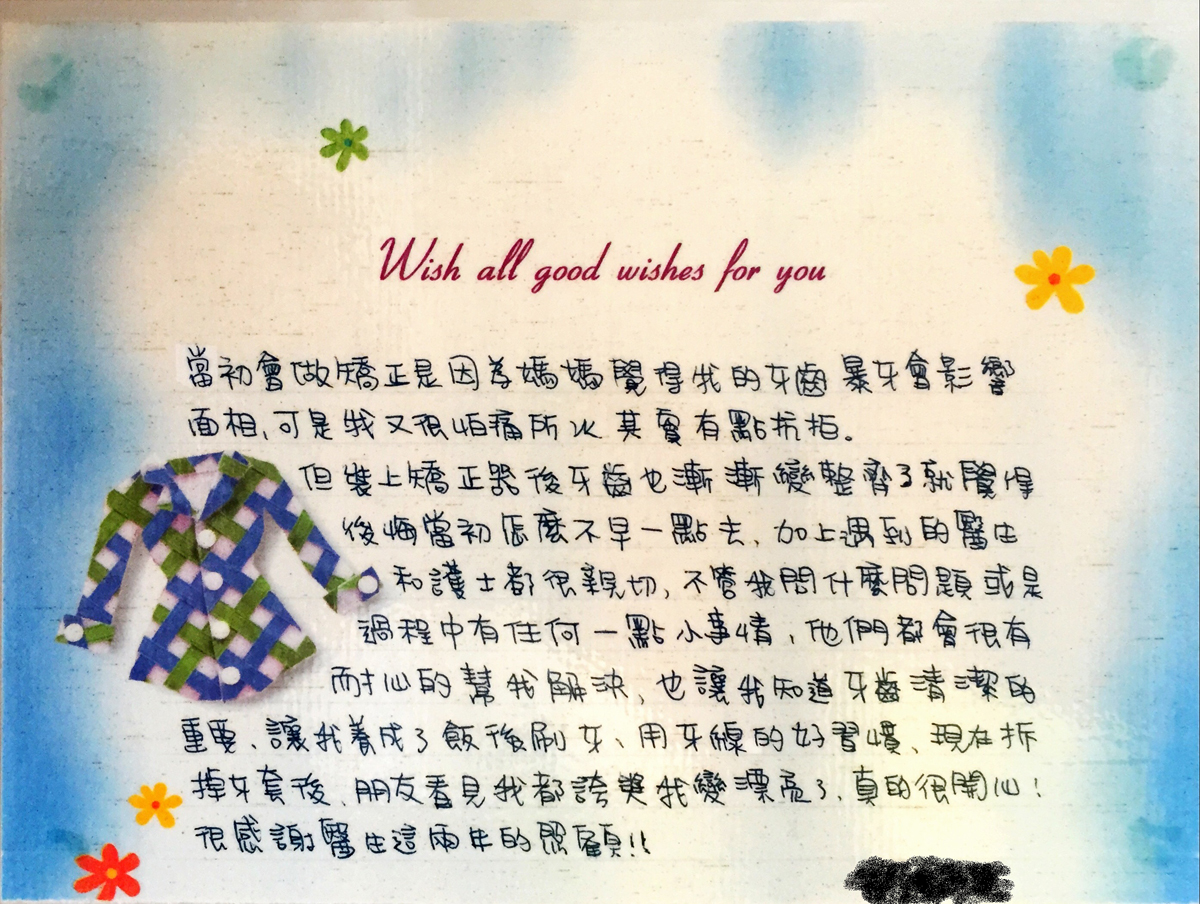 Wish all good wishes for you
當初會做矯正是因為媽媽覺得我的牙齒暴牙會影響
面相,可是我又很怕痛所以其實有點抗拒。
但裝上矯正器後牙齒也漸漸變整齊了就覺得
後悔當初怎麼不早一點去、加上遇到的醫生
和護士都很親切,不管我問什麼問題或是
過程中有任何一點小事情,他們都會很有
耐心的幫我解決,也讓我知道牙齒清潔的
重要、讓我養成了飯後刷牙、用牙線的好習慣、現在拆
掉牙套後、朋友看見我都誇獎我變漂亮了、真的很開心!
很感謝醫生這兩年的照顧!!